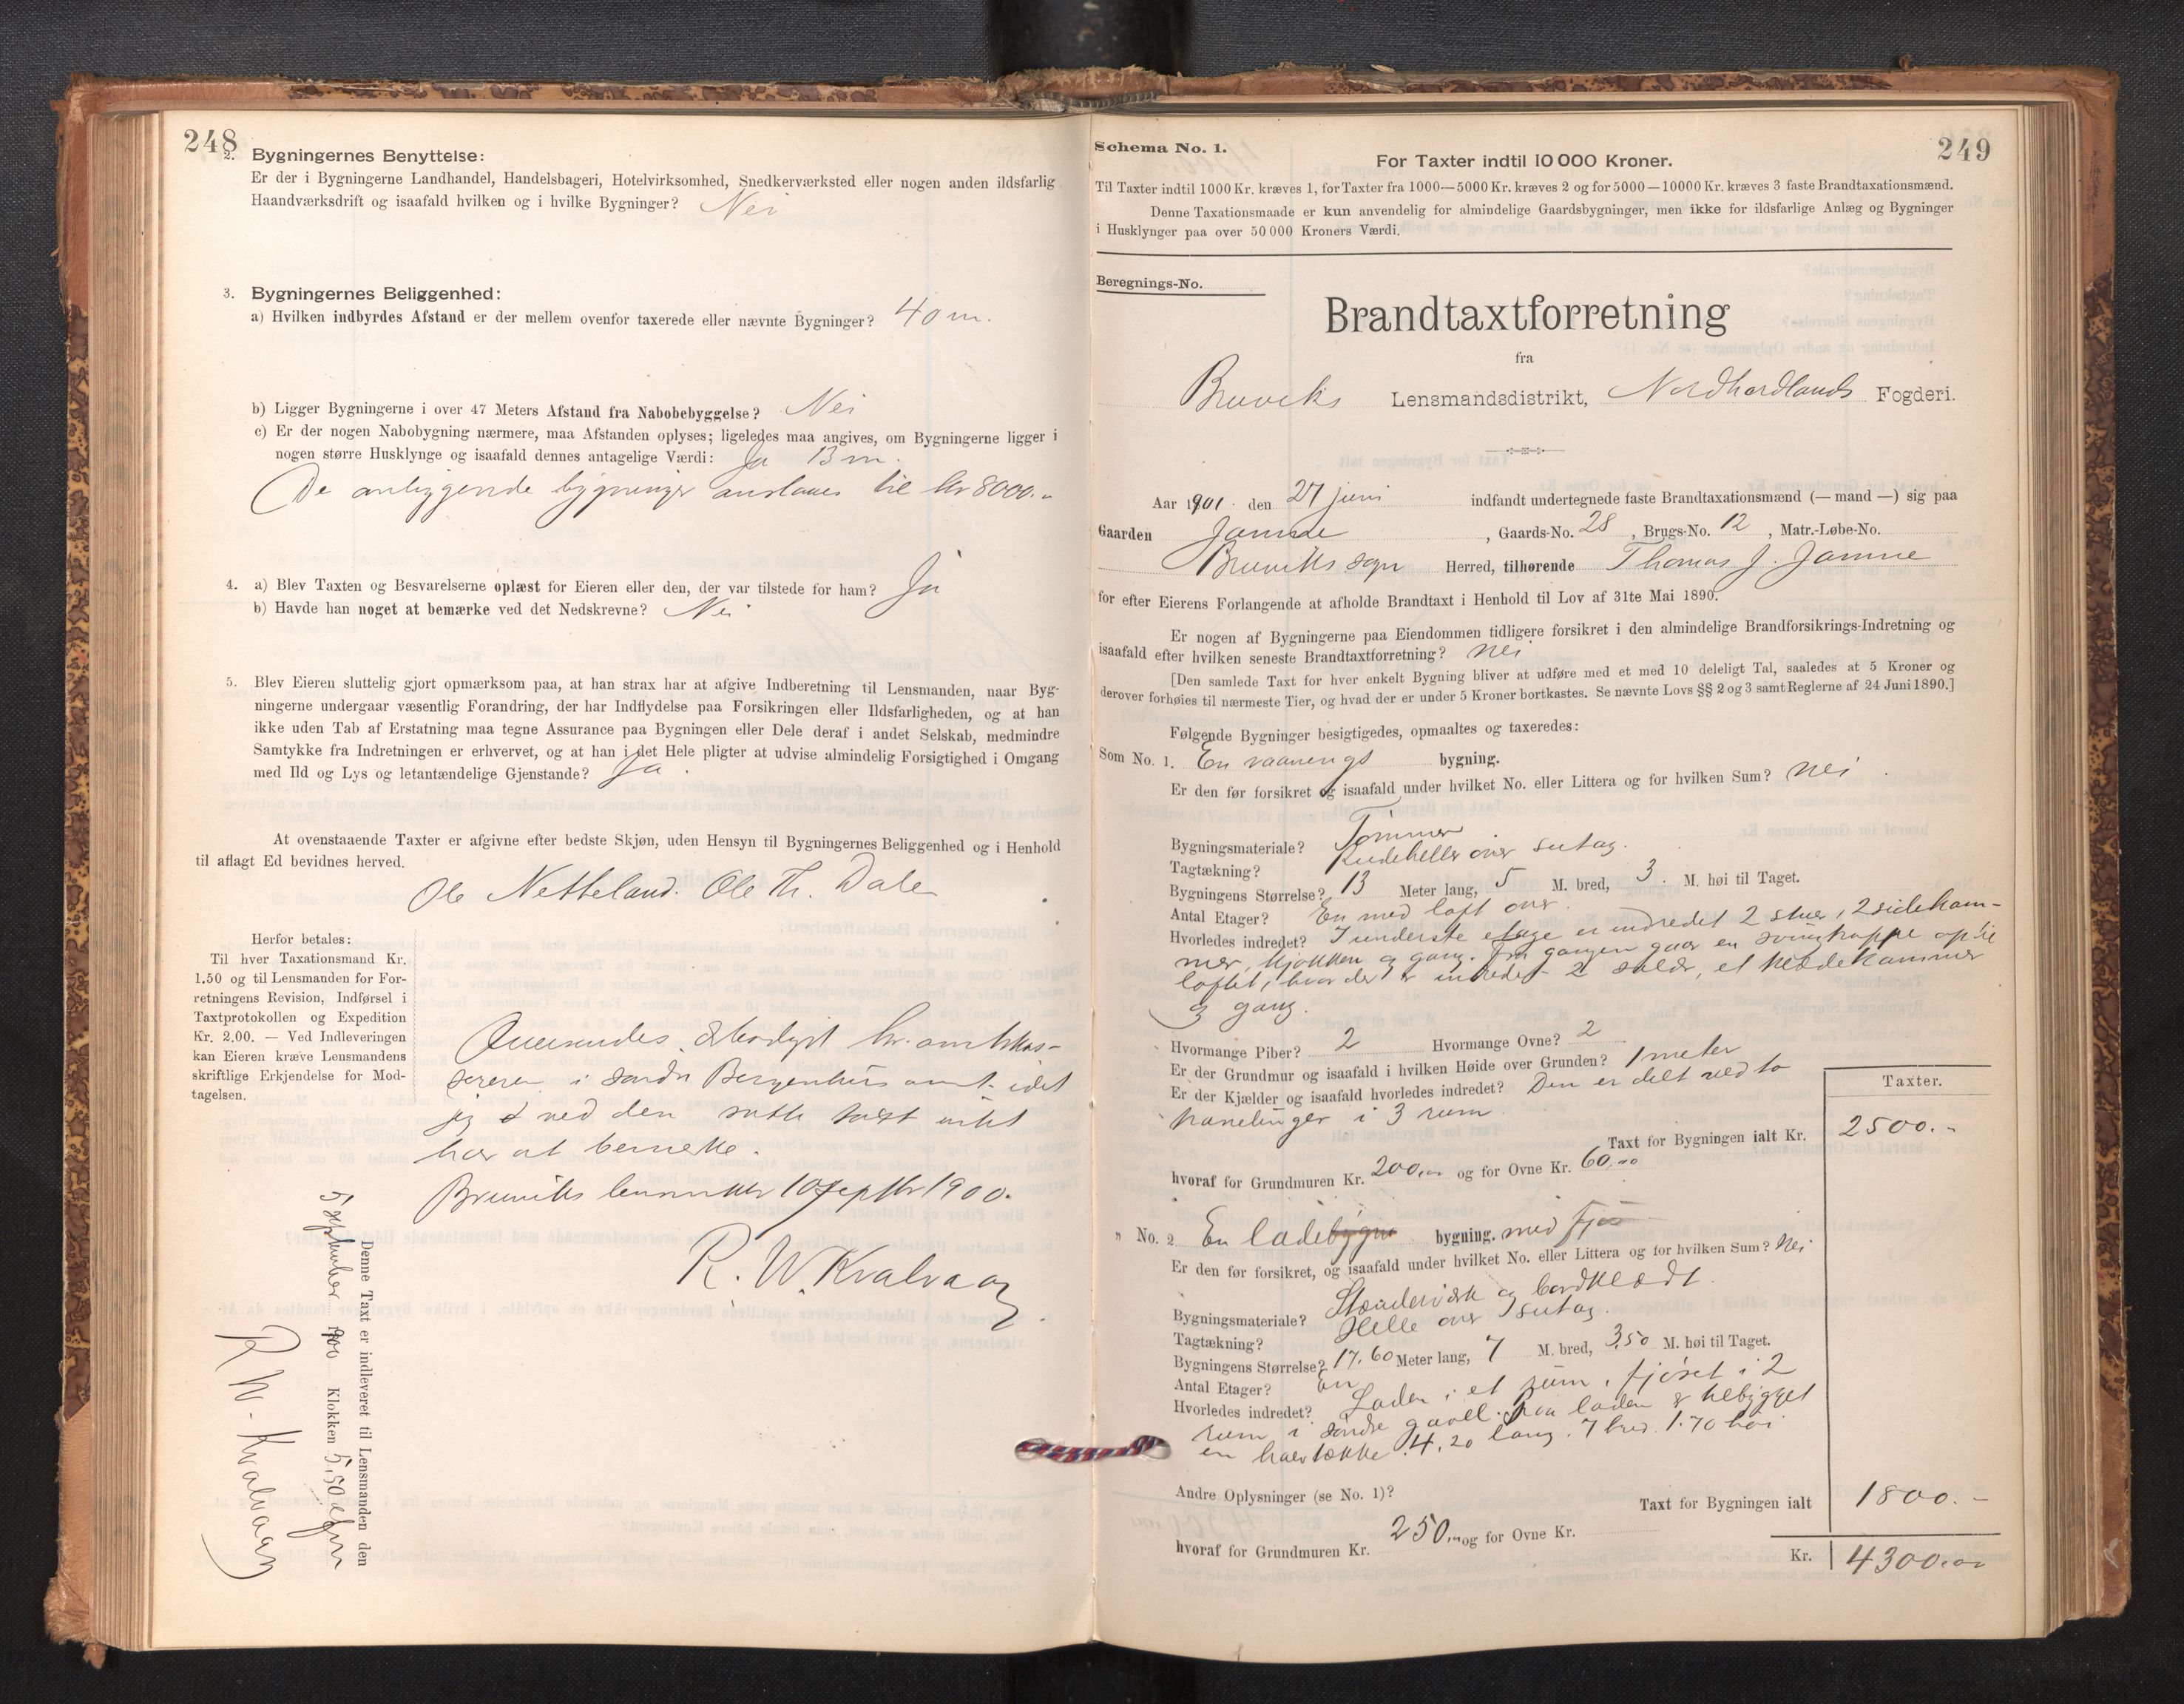 248
2. Bygningernes Benyttelse:
Er der i Bygningerne Landhandel, Handelsbageri, Hotelvirksomhed, Snedkerværksted eller nogen anden ildsfarlig
Haandværksdrift og isaafald hvilken og i hvilke Bygninger? Nei
3. Bygningernes Beliggenhed:
a) Hvilken indbyrdes Afstand er der mellem ovenfor taxerede eller nævnte Bygninger? 40 m.
b) Ligger Bygningerne i over 47 Meters Afstand fra Nabobebyggelse? Nei
c) Er der nogen Nabobygning nærmere, maa Afstanden oplyses; ligeledes maa angives, om Bygningerne ligger i
nogen større Husklynge og isaafald dennes antagelige Værdi: Ja 13 m.
De anliggende bygninger anslaaes til kr 8000.
4. a) Blev Taxten og Besvarelserne oplæst for Eieren eller den, der var tilstede for ham? Ja
b) Havde han noget at bemærke ved det Nedskrevne? Nei
5. Blev Eieren sluttelig gjort opmærksom paa, at han strax har at afgive Indberetning til Lensmanden, naar Byg-
ningerne undergaar væsentlig Forandring, der har Indflydelse paa Forsikringen eller Ildsfarligheden, og at han
ikke uden Tab af Erstatning maa tegne Assurance paa Bygningen eller Dele deraf i andet Selskab, medmindre
Samtykke fra Indretningen er erhvervet, og at han i det Hele pligter at udvise almindelig Forsigtighed i Omgang
med Ild og Lys og letantændelige Gjenstande? Ja.
At ovenstaaende Taxter er afgivne efter bedste Skjøn, uden Hensyn til Bygningernes Beliggenhed og i Henhold
til aflagt Ed bevidnes herved.
Ole Netteland. Ole Th. Dale
Herfor betales:
Til hver Taxationsmand Kr.
1.50 og til Lensmanden for For-
retningens Revision, Indførsel i
Taxtprotokollen og Expedition
Kr. 2.00. — Ved Indleveringen
kan Eieren kræve Lensmandens
skriftlige Erkjendelse for Mod-
tagelsen.
Oversendes ærbødigst hr. amtskas-
sereren i søndre Bergenhus amt idet
jeg ved den satte taxt intet
har at bemerke.
Bruviks lensmktr 10 septbr 1900.
R. W. Kvalvaag
Denne Taxt er indleveret til Lensmanden den
5 september 1900 Klokken 5,50 efm
R W. Kvalvaag
249
Schema No. 1.
For Taxter indtil 10 000 Kroner.
Til Taxter indtil 1000 Kr. kræves 1, for Taxter fra 1000—5000 Kr. kræves 2 og for 5000—10000 Kr. kræves 3 faste Brandtaxationsmænd.
Denne Taxationsmaade er kun anvendelig for almindelige Gaardsbygninger, men ikke for ildsfarlige Anlæg og Bygninger
i Husklynger paa over 50 000 Kroners Værdi.
Beregnings-No.
Brandtaxtforretning
fra
Bruviks Lensmandsdistrikt, Nordhordlands Fogderi.
Aar 1901 den 27 juni indfandt undertegnede faste Brandtaxationsmænd (— mand —) sig paa
Gaarden Jamne, Gaards-No. 28, Brugs-No. 12, Matr.-Løbe-No.
Bruviks sogn Herred, tilhørende Thomas J. Jamne
for efter Eierens Forlangende at afholde Brandtaxt i Henhold til Lov af 31te Mai 1890.
Er nogen af Bygningerne paa Eiendommen tidligere forsikret i den almindelige Brandforsikrings-Indretning og
isaafald efter hvilken seneste Brandtaxtforretning? nei
[Den samlede Taxt for hver enkelt Bygning bliver at udføre med et med 10 deleligt Tal, saaledes at 5 Kroner og
derover forhøies til nærmeste Tier, og hvad der er under 5 Kroner bortkastes. Se nævnte Lovs §§ 2 og 3 samt Reglerne af 24 Juni 1890.]
Følgende Bygninger besigtigedes, opmaaltes og taxeredes:
Som No. 1. En vaanings bygning.
Er den før forsikret og isaafald under hvilket No. eller Littera og for hvilken Sum? nei.
Bygningsmateriale? Tømmer
Tagtækning? Rudeheller over sutag.
Bygningens Størrelse? 13 Meter lang, 5 M. bred, 3. M. høi til Taget.
Antal Etager? En med loft over.
Hvorledes indredet? I underste etage er indredet 2 stuer, 2 sidekam-
mer, kjøkken og gang. Fra gangen gaar en svingtrappe op til
loftet, hvor der er indredet 2 saler, et klædekammer
og gang.
Hvormange Piber? 2 Hvormange Ovne? 2
Er der Grundmur og isaafald i hvilken Høide over Grunden? 1 meter
Er der Kjælder og isaafald hvorledes indredet? Den er delt ved to
panelinger i 3 rum
Taxter.
Taxt for Bygningen ialt Kr. 2500.-
hvoraf for Grundmuren Kr. 200,00 og for Ovne Kr. 60,00
" No. 2 En ladebygn bygning. med fjøs
Er den før forsikret, og isaafald under hvilket No. eller Littera og for hvilken Sum? Nei
Bygningsmateriale? Stænderværk og bordklædt.
Tagtækning? Helle over sutag.
Bygningens Størrelse? 17.60 Meter lang, 7 M. bred, 3,50 M. høi til Taget.
Antal Etager? En
Hvorledes indredet? Laden i et rum, fjøset i 2
rum i søndre gavl. Paa laden er tilbygget
en 4.20 lang. 7 bred. 1.70 høi
Andre Oplysninger (se No. 1)?
Taxt for Bygningen ialt 1800.-
hvoraf for Grundmuren Kr. 250,00 og for Ovne Kr.
Kr. 4300,00